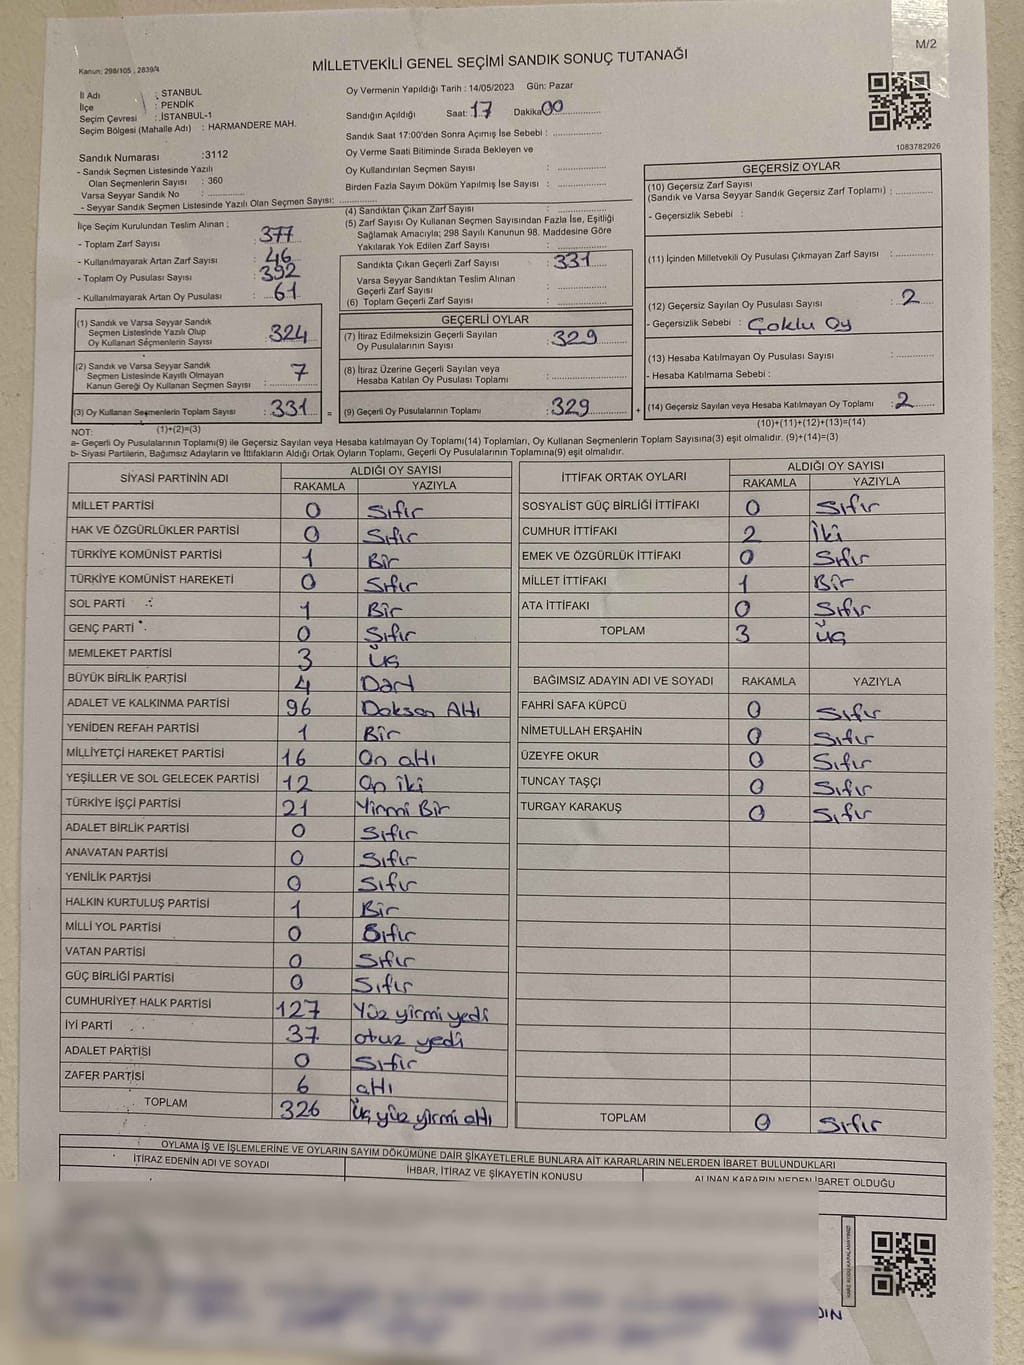 M/2
Kanun: 298/105 , 2839/4
MİLLETVEKİLİ GENEL SEÇİMİ SANDIK SONUÇ TUTANAĞI
İl Adı : İSTANBUL
İlçe : PENDİK
Seçim Çevresi : İSTANBUL-1
Seçim Bölgesi (Mahalle Adı) : HARMANDERE MAH.
Oy Vermenin Yapıldığı Tarih : 14/05/2023 Gün: Pazar
Sandığın Açıldığı Saat: 17 Dakika 00
Sandık Saat 17:00'den Sonra Açımış İse Sebebi :
Oy Verme Saati Bitiminde Sırada Bekleyen ve
Oy Kullandırılan Seçmen Sayısı :
Birden Fazla Sayım Döküm Yapılmış İse Sayısı :
1083782926
Sandık Numarası :3112
- Sandık Seçmen Listesinde Yazılı
Olan Seçmenlerin Sayısı : 360
Varsa Seyyar Sandık No :
- Seyyar Sandık Seçmen Listesinde Yazılı Olan Seçmen Sayısı:
İlçe Seçim Kurulundan Teslim Alınan :
- Toplam Zarf Sayısı : 377
- Kullanılmayarak Artan Zarf Sayısı : 46
- Toplam Oy Pusulası Sayısı : 392
- Kullanılmayarak Artan Oy Pusulası : 61
(1) Sandık ve Varsa Seyyar Sandık
Seçmen Listesinde Yazılı Olup
Oy Kullanan Seçmenlerin Sayısı : 324
(2) Sandık ve Varsa Seyyar Sandık
Seçmen Listesinde Kayıtlı Olmayan
Kanun Gereği Oy Kullanan Seçmen Sayısı : 7
(3) Oy Kullanan Seçmenlerin Toplam Sayısı : 331 =
(1)+(2)=(3)
(4) Sandıktan Çıkan Zarf Sayısı :
(5) Zarf Sayısı Oy Kullanan Seçmen Sayısından Fazla İse, Eşitliği
Sağlamak Amacıyla; 298 Sayılı Kanunun 98. Maddesine Göre
Yakılarak Yok Edilen Zarf Sayısı :
Sandıkta Çıkan Geçerli Zarf Sayısı : 331
Varsa Seyyar Sandıktan Teslim Alınan
Geçerli Zarf Sayısı :
(6) Toplam Geçerli Zarf Sayısı :
GEÇERLİ OYLAR
(7) İtiraz Edilmeksizin Geçerli Sayılan
Oy Pusulalarının Sayısı : 329
(8) İtiraz Üzerine Geçerli Sayılan veya
Hesaba Katılan Oy Pusulası Toplamı :
(9) Geçerli Oy Pusulalarının Toplamı : 329 +
GEÇERSİZ OYLAR
(10) Geçersiz Zarf Sayısı
(Sandık ve Varsa Seyyar Sandık Geçersiz Zarf Toplamı) :
- Geçersizlik Sebebi :
(11) İçinden Milletvekili Oy Pusulası Çıkmayan Zarf Sayısı :
(12) Geçersiz Sayılan Oy Pusulası Sayısı : 2
- Geçersizlik Sebebi : Çoklu Oy
(13) Hesaba Katılmayan Oy Pusulası Sayısı :
- Hesaba Katılmama Sebebi :
(14) Geçersiz Sayılan veya Hesaba Katılmayan Oy Toplamı : 2
(10)+(11)+(12)+(13)=(14)
NOT:
a- Geçerli Oy Pusulaları Toplamı(9) ile Geçersiz Sayılan veya Hesaba katılmayan Oy Toplamı(14) Toplamları, Oy Kullanan Seçmenlerin Toplam Sayısına(3) eşit olmalıdır. (9)+(14)=(3)
b- Siyasi Partilerin, Bağımsız Adayların ve İttifakların Aldığı Ortak Oyların Toplamı, Geçerli Oy Pusulalarının Toplamına(9) eşit olmalıdır.
SİYASİ PARTİNİN ADI ALDIĞI OY SAYISI
RAKAMLA YAZIYLA
MİLLET PARTİSİ 0 Sıfır
HAK VE ÖZGÜRLÜKLER PARTİSİ 0 Sıfır
TÜRKİYE KOMÜNİST PARTİSİ 1 Bir
TÜRKİYE KOMÜNİST HAREKETİ 0 Sıfır
SOL PARTİ 1 Bir
GENÇ PARTİ 0 Sıfır
MEMLEKET PARTİSİ 3 Üç
BÜYÜK BİRLİK PARTİSİ 4 Dört
ADALET VE KALKINMA PARTİSİ 96 Doksan Altı
YENİDEN REFAH PARTİSİ 1 Bir
MİLLİYETÇİ HAREKET PARTİSİ 16 On altı
YEŞİLLER VE SOL GELECEK PARTİSİ 12 On iki
TÜRKİYE İŞÇİ PARTİSİ 21 Yirmi Bir
ADALET BİRLİK PARTİSİ 0 Sıfır
ANAVATAN PARTİSİ 0 Sıfır
YENİLİK PARTİSİ 0 Sıfır
HALKIN KURTULUŞ PARTİSİ 1 Bir
MİLLİ YOL PARTİSİ 0 Sıfır
VATAN PARTİSİ 0 Sıfır
GÜÇ BİRLİĞİ PARTİSİ 0 Sıfır
CUMHURİYET HALK PARTİSİ 127 Yüz yirmi yedi
İYİ PARTİ 37 otuz yedi
ADALET PARTİSİ 0 Sıfır
ZAFER PARTİSİ 6 altı
TOPLAM 326 Üç yüz yirmi altı
İTTİFAK ORTAK OYLARI ALDIĞI OY SAYISI
RAKAMLA YAZIYLA
SOSYALİST GÜÇ BİRLİĞİ İTTİFAKI 0 Sıfır
CUMHUR İTTİFAKI 2 İki
EMEK VE ÖZGÜRLÜK İTTİFAKI 0 Sıfır
MİLLET İTTİFAKI 1 Bir
ATA İTTİFAKI 0 Sıfır
TOPLAM 3 Üç
BAĞIMSIZ ADAYIN ADI VE SOYADI RAKAMLA YAZIYLA
FAHRİ SAFA KÜPCÜ 0 Sıfır
NİMETULLAH ERŞAHİN 0 Sıfır
ÜZEYFE OKUR 0 Sıfır
TUNCAY TAŞÇI 0 Sıfır
TURGAY KARAKUŞ 0 Sıfır
TOPLAM 0 Sıfır
OYLAMA İŞ VE İŞLEMLERİNE VE OYLARIN SAYIM DÖKÜMÜNE DAİR ŞİKAYETLERLE BUNLARA AİT KARARLARIN NELERDEN İBARET BULUNDUKLARI
İTİRAZ EDENİN ADI VE SOYADI İHBAR, İTİRAZ VE ŞİKAYETİN KONUSU ALINAN KARARIN NEDEN İBARET OLDUĞU